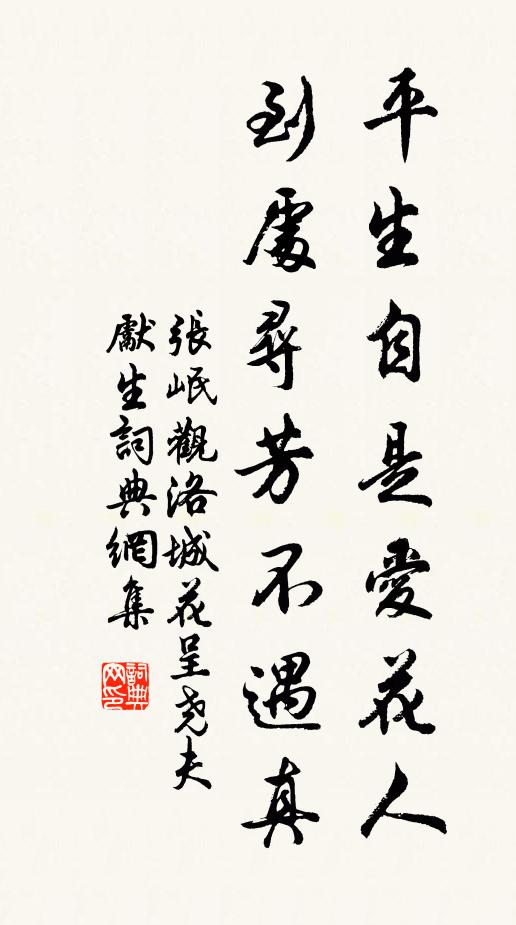 平生自是愛花人
到處尋芳不遇真
張岷觀洛城花呈尧夫
獻生詞典網集
詞典
网印